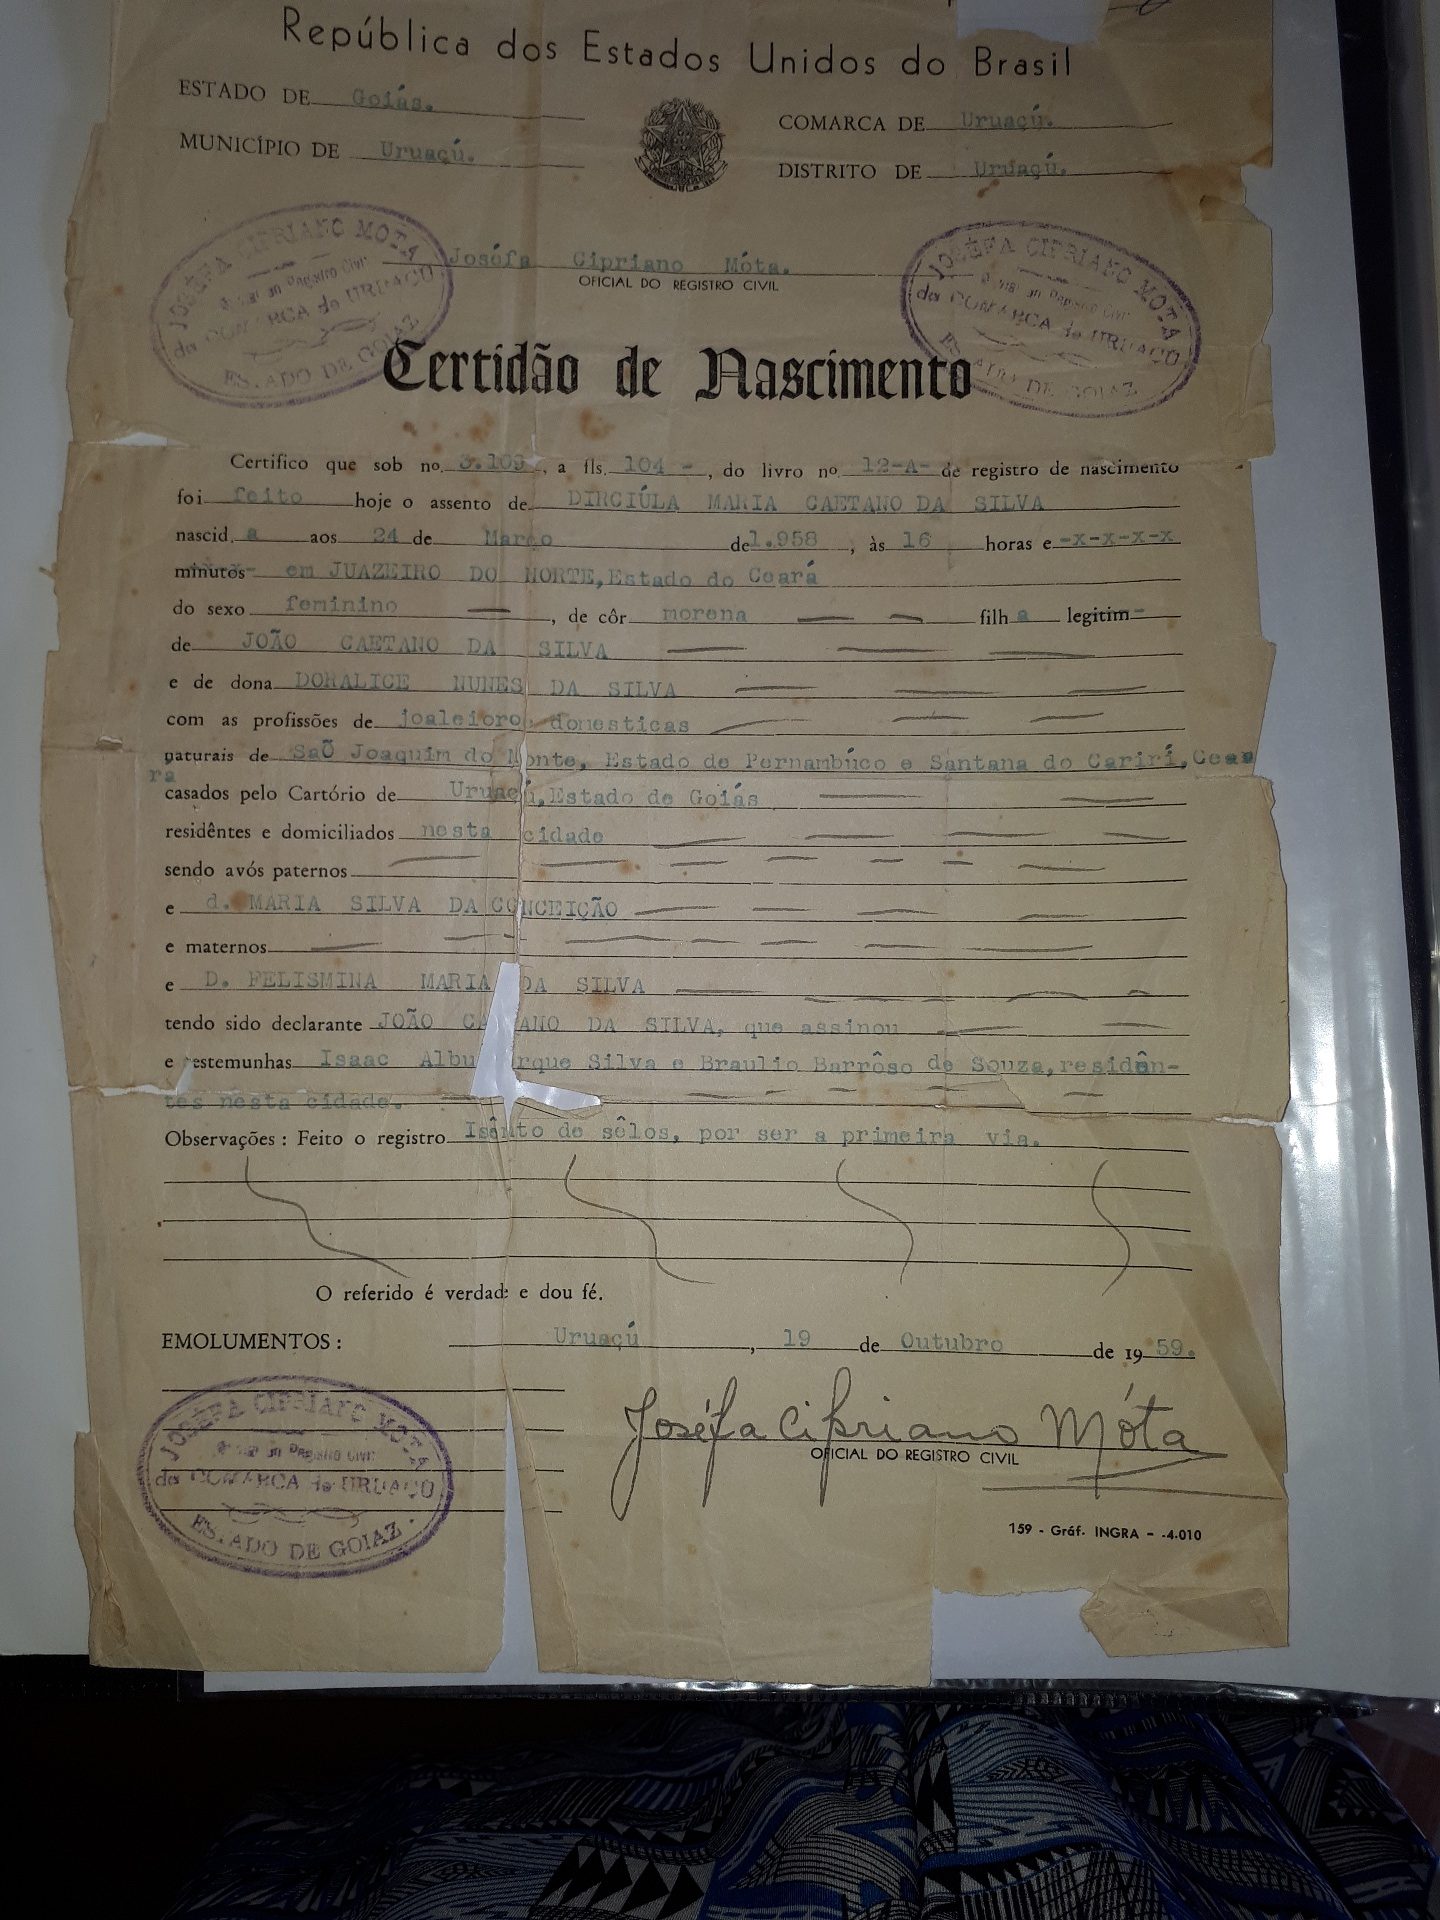 República dos Estados Unidos do Brasil
ESTADO DE Goiás.
COMARCA DE Uruaçú.
MUNICÍPIO DE Uruaçú.
DISTRITO DE Uruaçú.
Joséfa Cipriano Móta.
OFICIAL DO REGISTRO CIVIL
JOSÉFA CIPRIANO MOTA
da COMARCA de URUAÇU
ESTADO DE GOIAZ
JOSÉFA CIPRIANO MOTA
da COMARCA de URUAÇU
ESTADO DE GOIAZ
Certidão de Nascimento
Certifico que sob no. 3.109 , a fls. 104 - , do livro nº 12-A- de registro de nascimento
foi feito hoje o assento de DIRCIÚLA MARIA CAETANO DA SILVA
nascid. a aos 24 de Março de 1.958 , às 16 horas e -x-x-x-x
minutos em JUAZEIRO DO NORTE, Estado do Ceará
do sexo feminino , de côr morena filh a legitim-
de JOÃO CAETANO DA SILVA
e de dona DORALICE NUNES DA SILVA
com as profissões de joaleioro domesticas
naturais de SaÕ Joaquim do Monte, Estado de Pernambúco e Santana do Carirí, Ceaa
rá
casados pelo Cartório de Uruaçú, Estado de Goiás
residêntes e domiciliados nesta cidade
sendo avós paternos
e d. MARIA SILVA DA CONCEIÇÃO
e maternos
e D. FELISMINA MARIA DA SILVA
tendo sido declarante JOÃO CA ANO DA SILVA, que assinou
e estemunhas Isaac Albu rque Silva e Braulio Barrôso de Souza, residên-
tes nesta cidade.
Observações : Feito o registro Isênto de sêlos, por ser a primeira via.
O referido é verdade e dou fé.
EMOLUMENTOS :
Uruaçú , 19 de Outubro de 19 59.
Joséfa Cipriano Móta
OFICIAL DO REGISTRO CIVIL
JOSÉFA CIPRIANO MOTA
da COMARCA de URUAÇU
ESTADO DE GOIAZ.
159 - Gráf. INGRA - -4.010